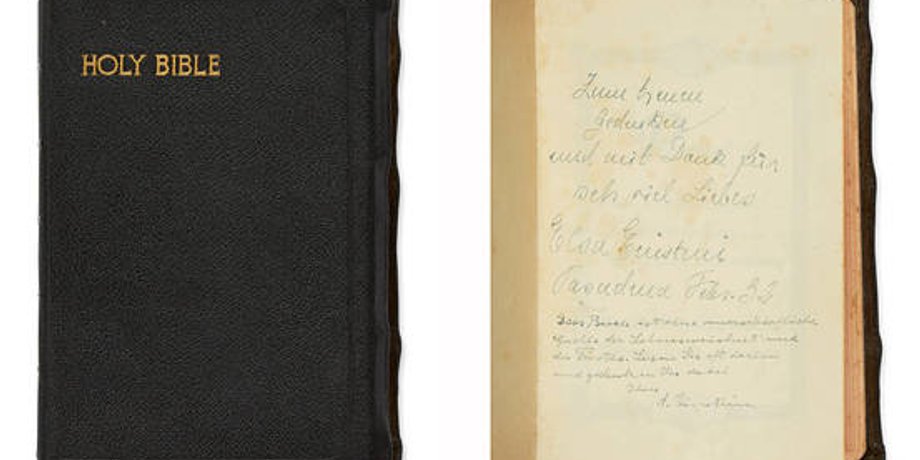 HOLY BIBLE
Zum
und mit Dank für
sehr viel Liebes
Elsa Einstein
Pasadena Febr. 32
Dies Buch ist eine unerschöpfliche
Quelle der Lebensweisheit und
des Trostes. Lesen Sie oft darin
und
A. Einstein